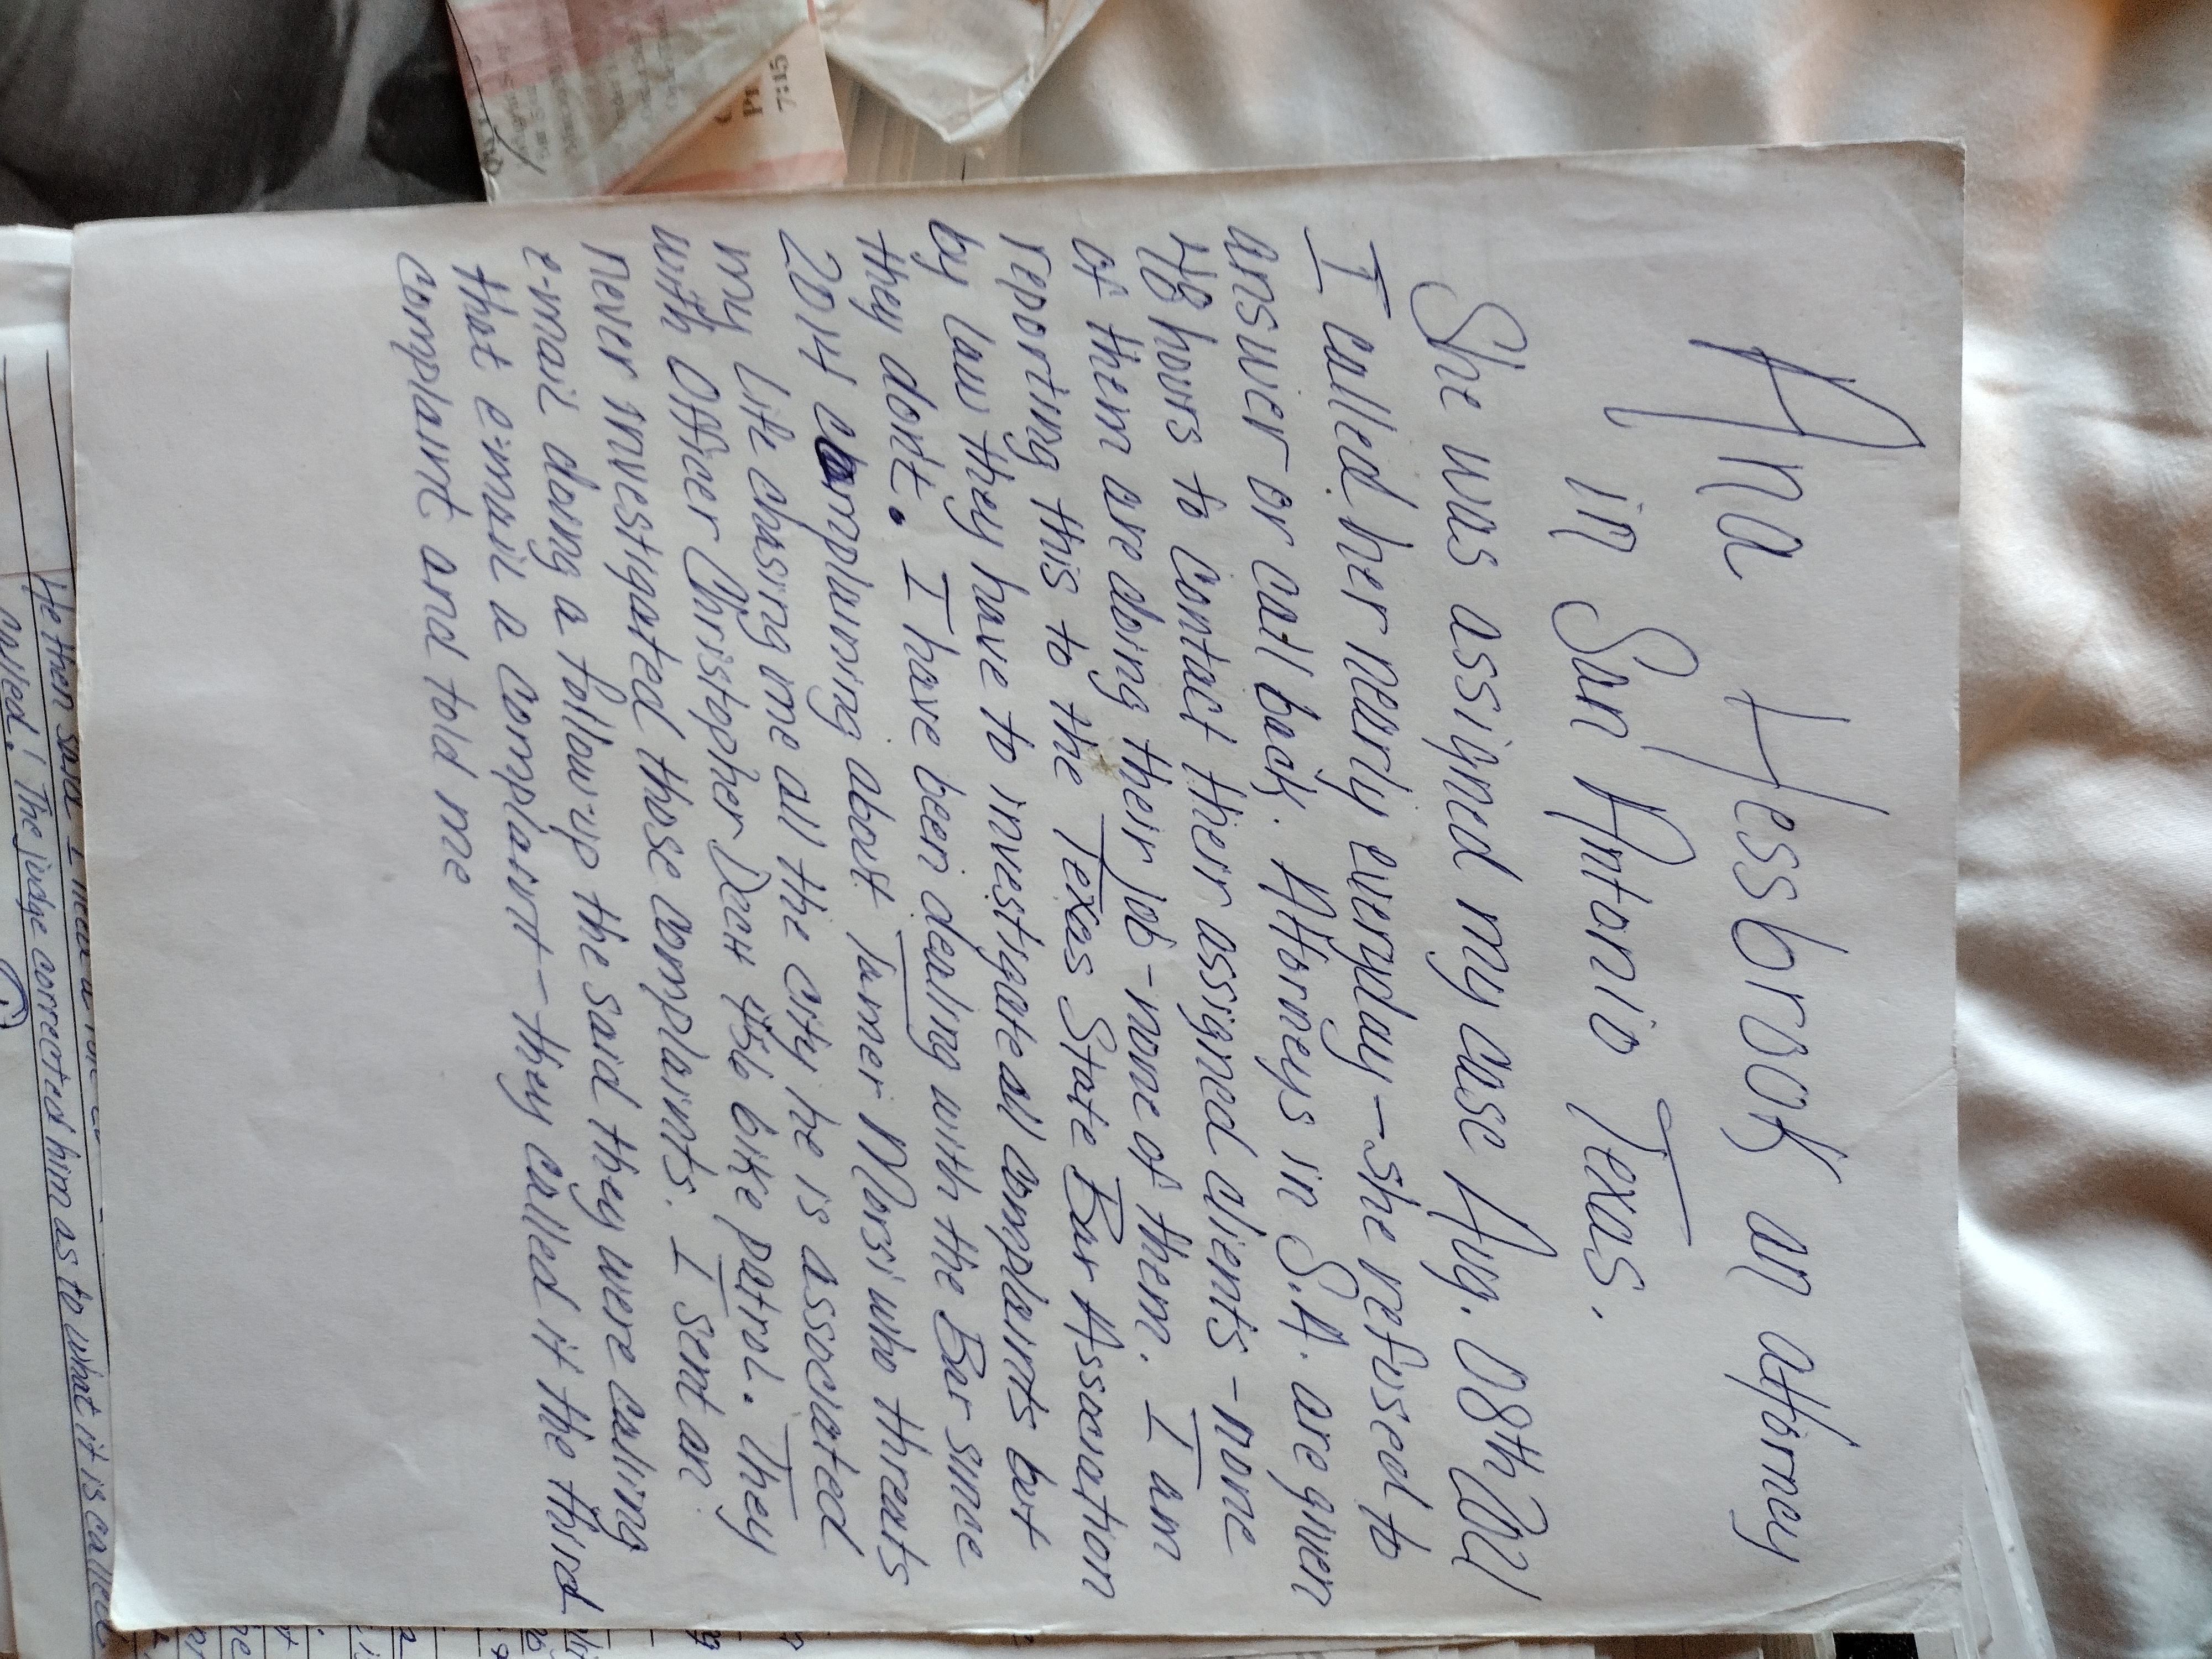 Ana Hessbrook an attorney
in San Antonio Texas.
She was assigned my case Aug. 08th 2021
I called her nearly everyday - She refused to
answer or call back. Attorneys in S.A. are given
48 hours to contact thier assigned clients - none
of them are doing their job - none of them. I am
reporting this to the Texas State Bar Association
by law they have to investigate all complaints but
they don't. I have been dealing with the Bar since
2014 complaining about Turner Morsi who threats
my life chasing me all the city he is associated
with Officer Christopher Dech #56 bike patrol. They
never investigated those complaints. I sent an
e-mail doing a follow up the said they were calling
that e-mail a complaint - they called it the third
complaint and told me
He then said I
called! The judge corrected him as to what it is called
Pr
7:15